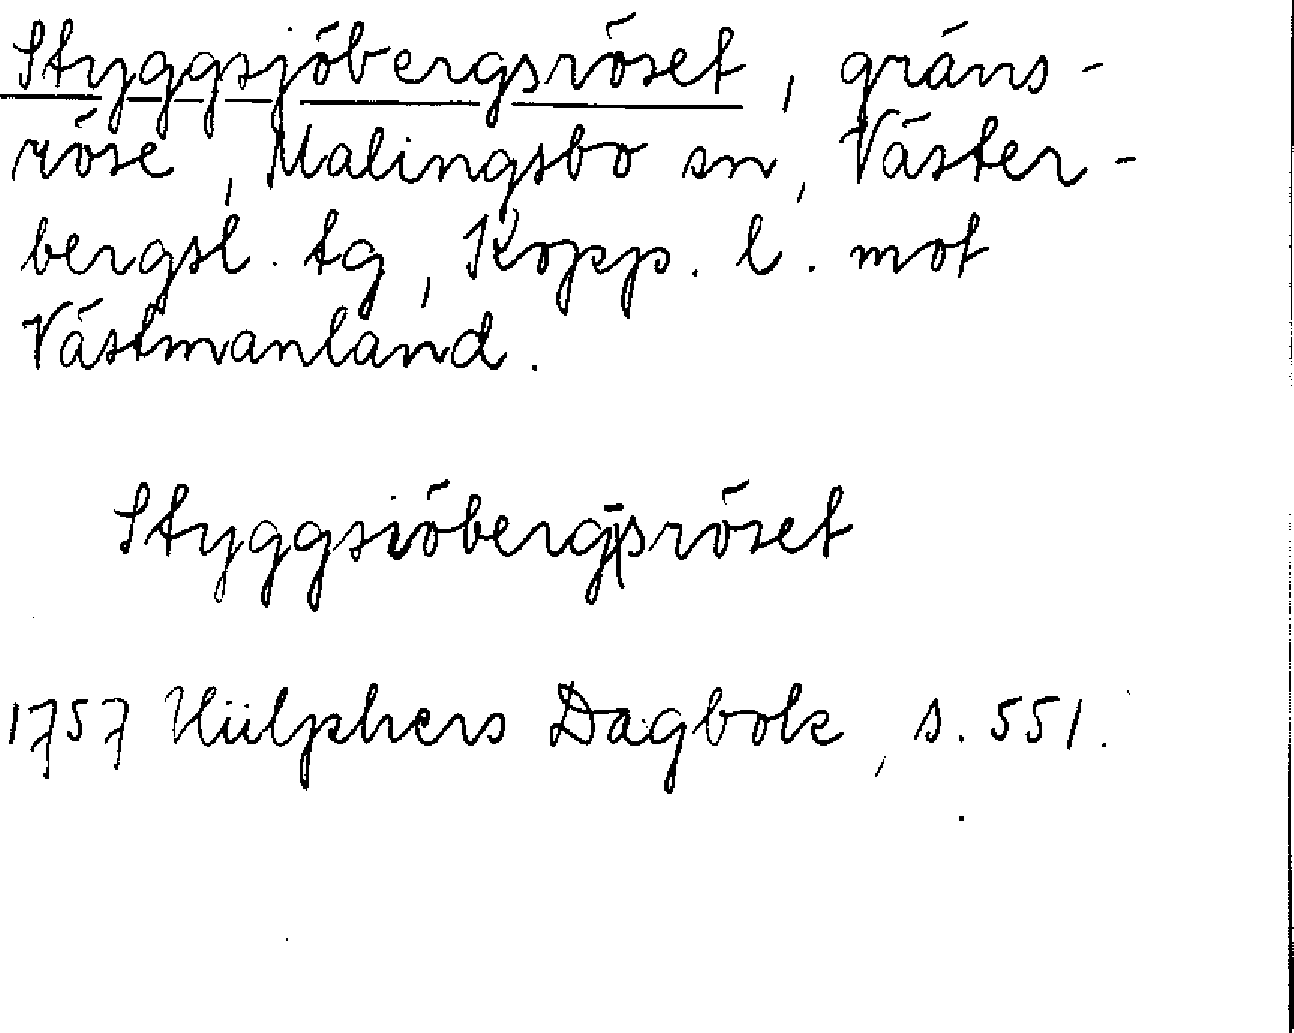 Styggsjöbergsröset, gräns-
röse, Malingsbo sn, Väster-
bergsl. tg, Kopp. l. mot
Västmanland.
Styggsiöbergsröset
1757 Hülphers Dagbok, s. 551.